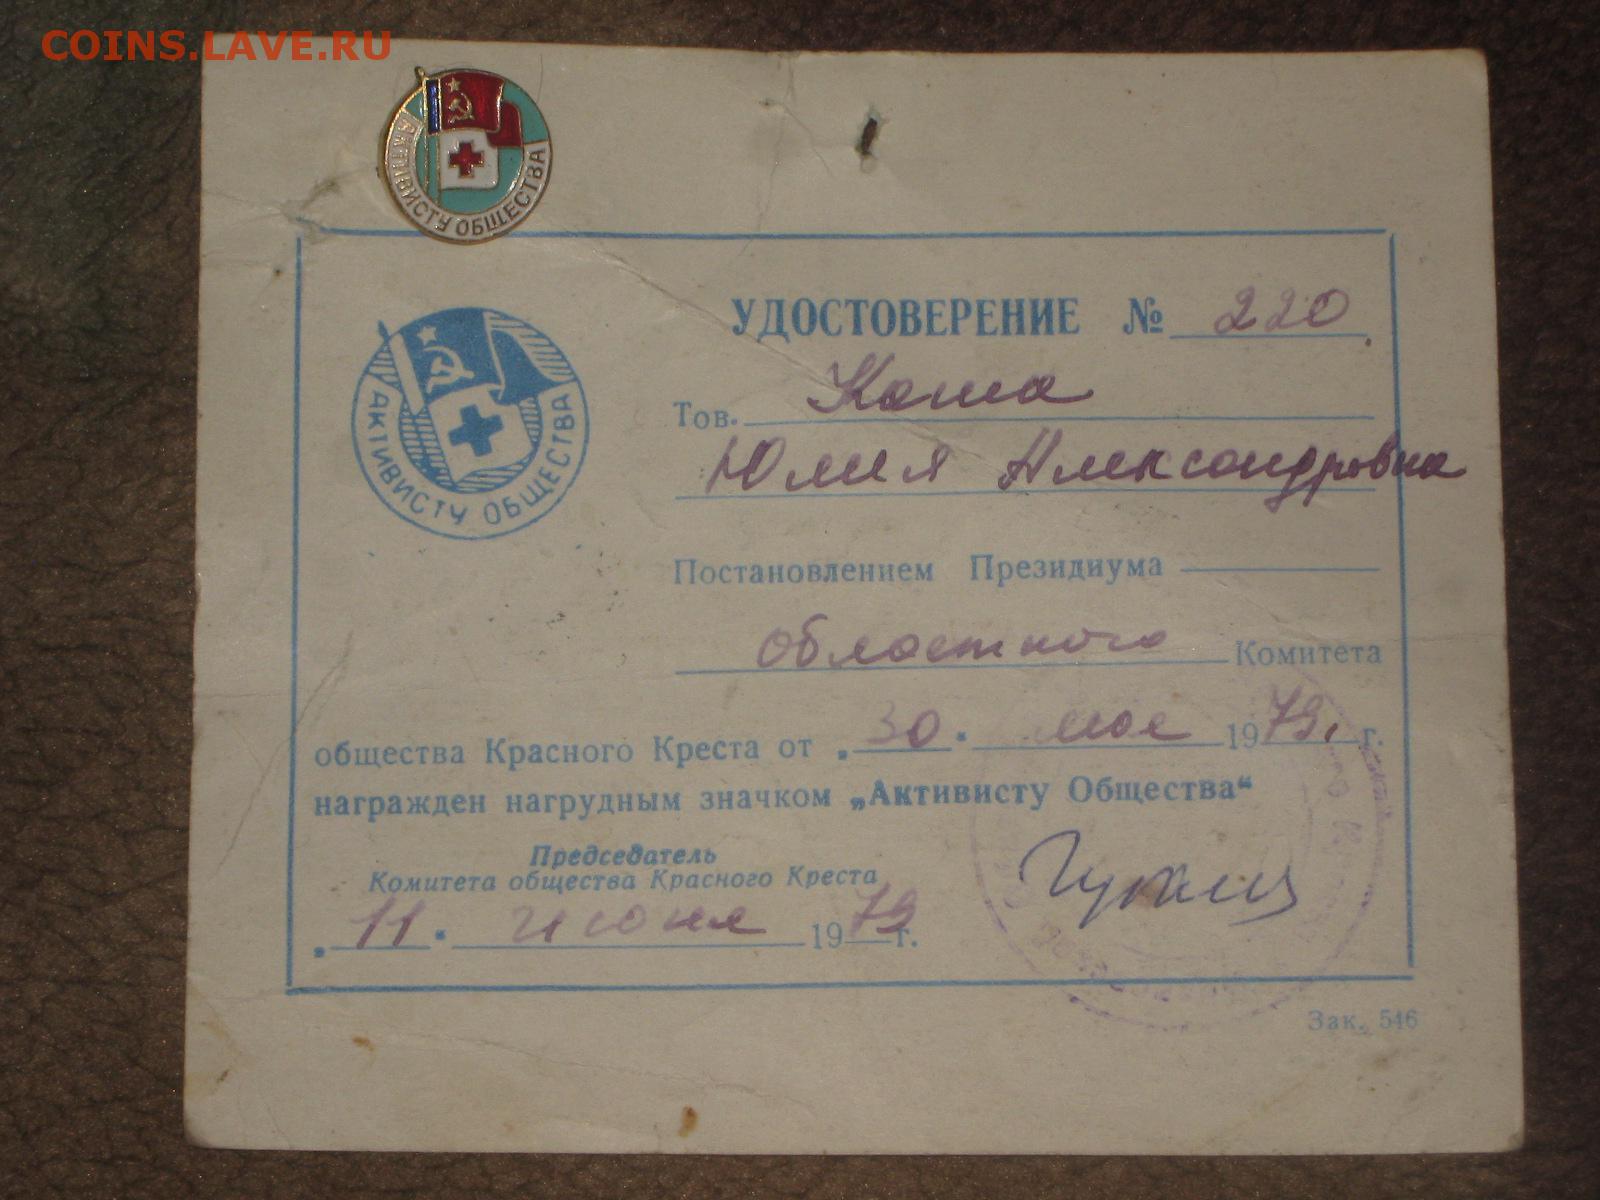 COINS.LAVE.RU
АКТИВИСТУ ОБЩЕСТВА
УДОСТОВЕРЕНИЕ № 220
АКТИВИСТУ ОБЩЕСТВА
Тов. Каша
Юлия Александровна
Постановлением Президиума
областного Комитета
общества Красного Креста от „30“ мая 1979. г.
награжден нагрудным значком „Активисту Общества“
Председатель
Комитета общества Красного Креста
„11“ июня 1979 г.
Зак. 546